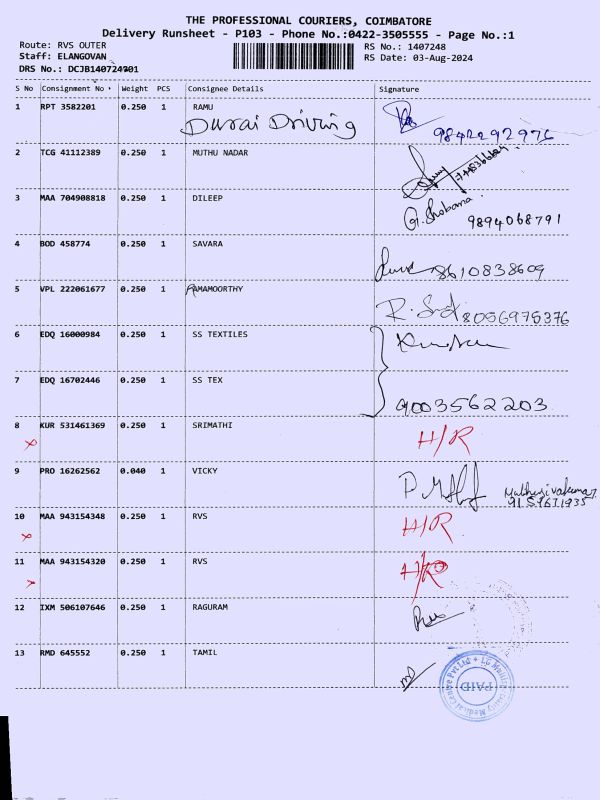 THE PROFESSIONAL COURIERS, COIMBATORE
Delivery Runsheet - P103 - Phone No.:0422-3505555 - Page No.:1
Route: RVS OUTER
RS No.: 1407248
Staff: ELANGOVAN
RS Date: 03-Aug-2024
DRS No.: DCJB140724901
S No Consignment No Weight PCS Consignee Details Signature
1 RPT 3582201 0.250 1 RAMU
Durai Driving 9842292976
2 TCG 41112389 0.250 1 MUTHU NADAR
3 MAA 704908818 0.250 1 DILEEP
G. Shobana 9894068791
4 BOD 458774 0.250 1 SAVARA
8610838609
5 VPL 222061677 0.250 1 RAMAMOORTHY
8056975376
6 EDQ 16000984 0.250 1 SS TEXTILES
7 EDQ 16702446 0.250 1 SS TEX
9003562203
8 KUR 531461369 0.250 1 SRIMATHI
x H/R
9 PRO 16262562 0.040 1 VICKY
10 MAA 943154348 0.250 1 RVS
x H/R
11 MAA 943154320 0.250 1 RVS
x H/R
12 IXM 506107646 0.250 1 RAGURAM
13 RMD 645552 0.250 1 TAMIL
PAID